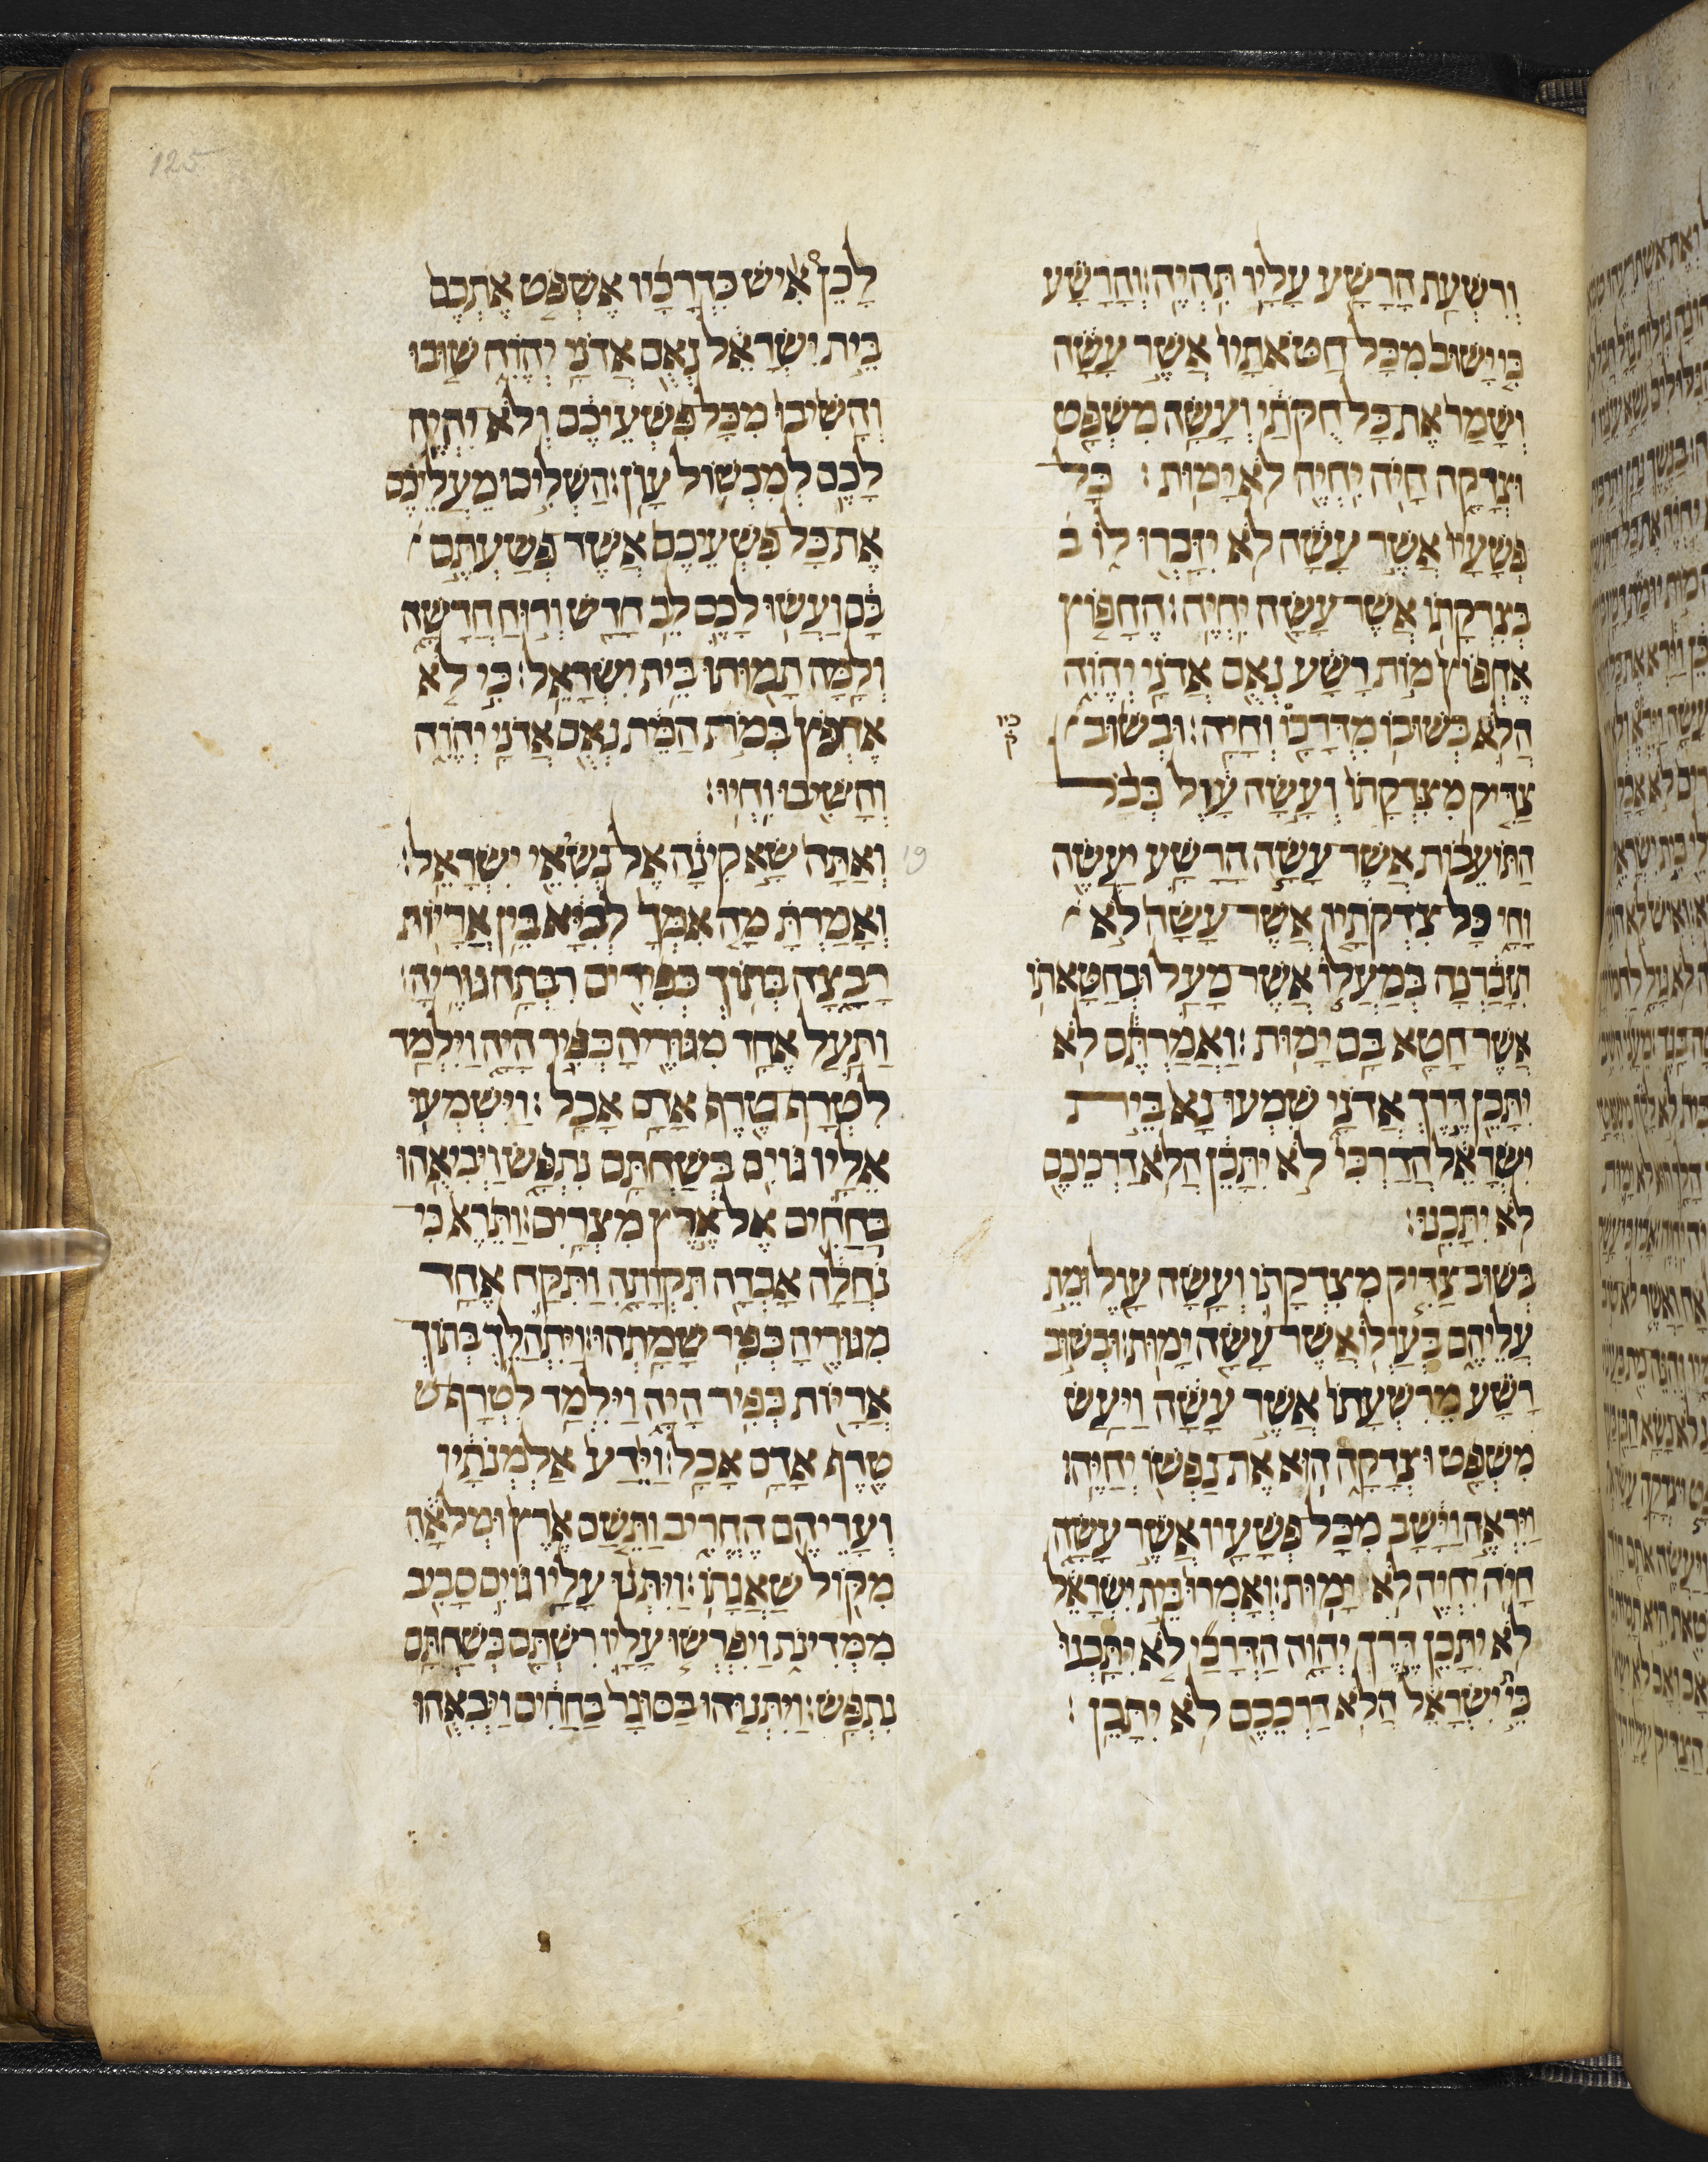 וְרִשְׁעַת הָרָשָׁע עָלָיו תִּהְיֶה׃ וְהָרָשָׁע
כִּי יָשׁוּב מִכָּל חַטֹּאתָיו אֲשֶׁר עָשָׂה
וְשָׁמַר אֶת כָּל חֻקֹּתַי וְעָשָׂה מִשְׁפָּט
וּצְדָקָה חָיֹה יִחְיֶה לֹא יָמוּת׃ כָּל
פְּשָׁעָיו אֲשֶׁר עָשָׂה לֹא יִזָּכְרוּ לוֹ ב
בְּצִדְקָתוֹ אֲשֶׁר עָשָׂה יִחְיֶה׃ הֶחָפוֹץ
אֶחְפּוֹץ מוֹת רָשָׁע נְאֻם אֲדֹנָי יְהוִה
הֲלֹא בְּשׁוּבוֹ מִדְּרָכָו וְחָיָה׃ וּבְשׁוּב
כיו
ק
צַדִּיק מִצִּדְקָתוֹ וְעָשָׂה עָוֶל בְּכֹל
הַתּוֹעֵבוֹת אֲשֶׁר עָשָׂה הָרָשָׁע יַעֲשֶׂה
וָחָי כָּל צִדְקֹתָיו אֲשֶׁר עָשָׂה לֹא
תִזָּכַרְנָה בְּמַעֲלוֹ אֲשֶׁר מָעַל וּבְחַטָּאתוֹ
אֲשֶׁר חָטָא בָּם יָמוּת׃ וַאֲמַרְתֶּם לֹא
יִתָּכֵן דֶּרֶךְ אֲדֹנָי שִׁמְעוּ נָא בֵּית
יִשְׂרָאֵל הֲדַרְכִּי לֹא יִתָּכֵן הֲלֹא דַרְכֵיכֶם
לֹא יִתָּכֵנוּ׃
בְּשׁוּב צַדִּיק מִצִּדְקָתוֹ וְעָשָׂה עָוֶל וּמֵת
עֲלֵיהֶם בְּעַוְלוֹ אֲשֶׁר עָשָׂה יָמוּת׃ וּבְשׁוּב
רָשָׁע מֵרִשְׁעָתוֹ אֲשֶׁר עָשָׂה וַיַּעַשׂ
מִשְׁפָּט וּצְדָקָה הוּא אֶת נַפְשׁוֹ יְחַיֶּהוּ
וַיִּרְאֶה וַיָּשָׁב מִכָּל פְּשָׁעָיו אֲשֶׁר עָשָׂה
חָיֹה יִחְיֶה לֹא יָמוּת׃ וְאָמְרוּ בֵּית יִשְׂרָאֵל
לֹא יִתָּכֵן דֶּרֶךְ יְהוָה הַדְּרָכַי לֹא יִתָּכְנוּ
בֵּית יִשְׂרָאֵל הֲלֹא דַרְכֵכֶם לֹא יִתָּכֵן׃
לָכֵן אִישׁ כִּדְרָכָיו אֶשְׁפֹּט אֶתְכֶם
בֵּית יִשְׂרָאֵל נְאֻם אֲדֹנָי יְהוִה שׁוּבוּ
וְהָשִׁיבוּ מִכָּל פִּשְׁעֵיכֶם וְלֹא יִהְיֶה
לָכֶם לְמִכְשׁוֹל עָוֺן׃ הַשְׁלִיכוּ מֵעֲלֵיכֶם
אֶת כָּל פִּשְׁעֵיכֶם אֲשֶׁר פְּשַׁעְתֶּם
בָּם וַעֲשׂוּ לָכֶם לֵב חָדָשׁ וְרוּחַ חֲדָשָׁה
וְלָמָּה תָמוּתוּ בֵּית יִשְׂרָאֵל׃ כִּי לֹא
אֶחְפֹּץ בְּמוֹת הַמֵּת נְאֻם אֲדֹנָי יְהוִה
וְהָשִׁיבוּ וִחְיוּ׃
19
וְאַתָּה שָׂא קִינָה אֶל נְשִׂיאֵי יִשְׂרָאֵל׃
וְאָמַרְתָּ מָה אִמְּךָ לְבִיָּא בֵּין אֲרָיוֹת
רָבָצָה בְּתוֹךְ כְּפִרִים רִבְּתָה גוּרֶיהָ׃
וַתַּעַל אֶחָד מִגֻּרֶיהָ כְּפִיר הָיָה וַיִּלְמַד
לִטְרָף טֶרֶף אָדָם אָכָל׃ וַיִּשְׁמְעוּ
אֵלָיו גּוֹיִם בְּשַׁחְתָּם נִתְפָּשׂ וַיְבִיאֻהוּ
בַחַחִים אֶל אֶרֶץ מִצְרָיִם׃ וַתֵּרֶא כִּי
נוֹחֲלָה אָבְדָה תִּקְוָתָהּ וַתִּקַּח אֶחָד
מִגֻּרֶיהָ כְּפִיר שָׂמָתְהוּ׃ וַיִּתְהַלֵּךְ בְּתוֹךְ
אֲרָיוֹת כְּפִיר הָיָה וַיִּלְמַד לִטְרָף ט
טֶרֶף אָדָם אָכָל׃ וַיֵּדַע אַלְמְנֹתָיו
וְעָרֵיהֶם הֶחֱרִיב וַתֵּשַׁם אֶרֶץ וּמְלֹאָהּ
מִקּוֹל שַׁאֲגָתוֹ׃ וַיִּתְּנוּ עָלָיו גּוֹיִם סָבִיב
מִמְּדִינֹת וַיִּפְרְשׂוּ עָלָיו רִשְׁתָּם בְּשַׁחְתָּם
נִתְפָּשׂ׃ וַיִּתְּנֻהוּ בַסּוּגַר בַּחַחִים וַיְבִאֻהוּ
125